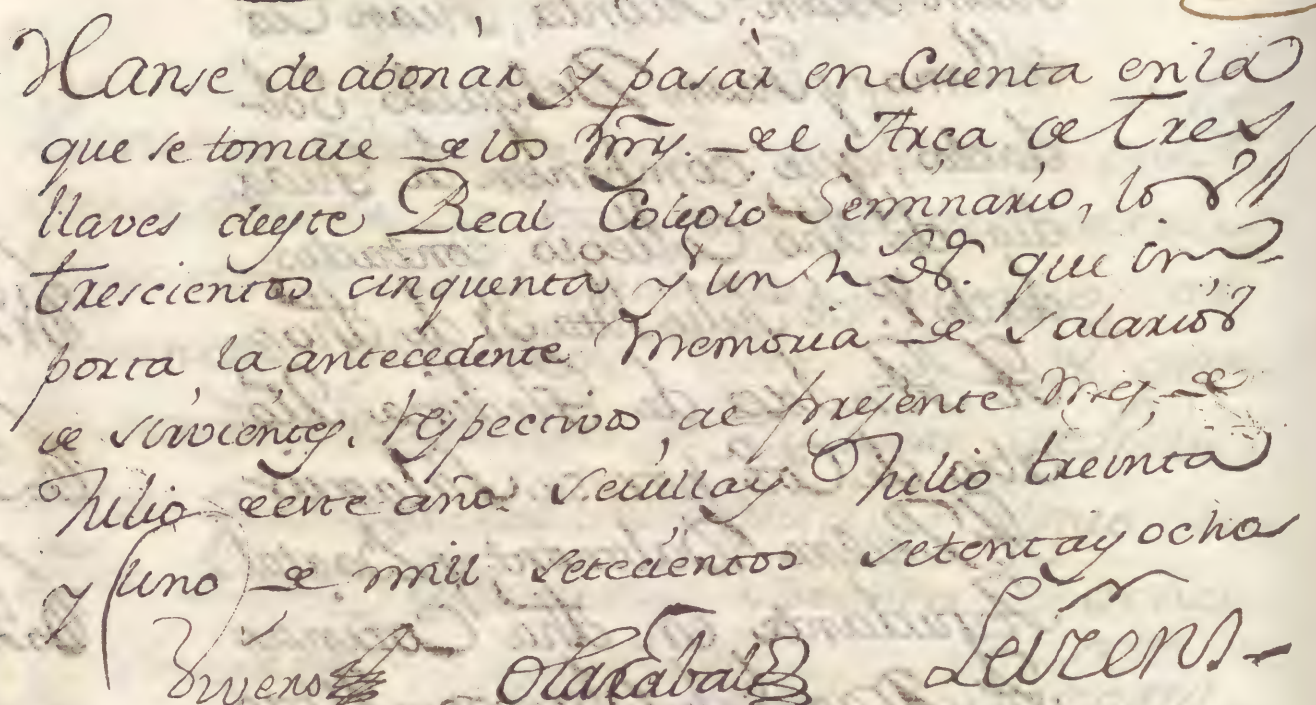 Hanse de abonar, y pasar en Cuenta en la
que se tomare de los mrs. del Arca de Tres
llaves deeste Real Colegio Seminario, los
trescientos cinquenta y un rs. que im-
porta la antecedente Memoria de Salarios
de sirvientes, respectivos al presente mes de
Julio de este año. Sevilla y Julio treinta
y uno de mill setecientos setenta y ocho
Olazabal